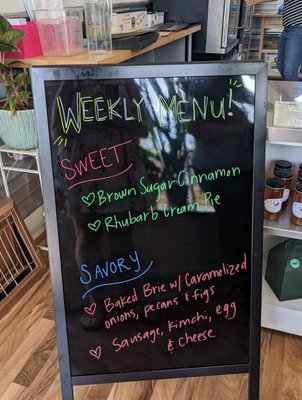 WEEKLY MENU!
SWEET
Brown Sugar Cinnamon
Rhubarb Cream Pie
SAVORY
Baked Brie w/ Caramelized
onions, pecans & figs
Sausage, Kimchi, egg
& Cheese